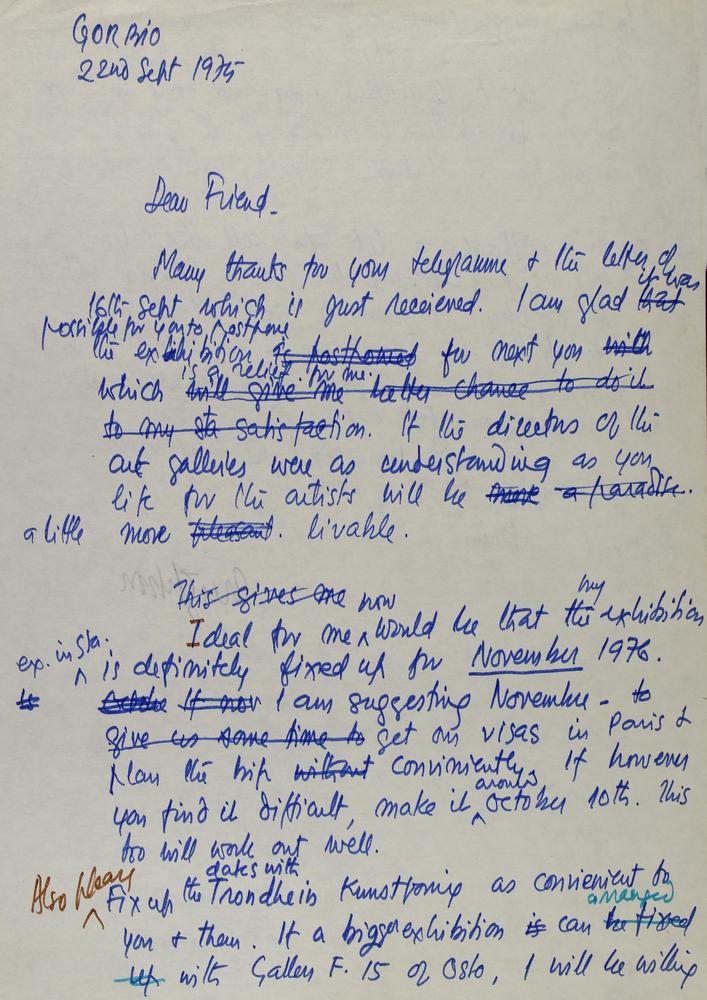 GORBIO
22nd Sept 1975
Dear Friend -
Many thanks for your telegramme & the letter of
it was
16th Sept which is just received. I am glad that
possible for you to postpone
the exhibition is postponed for next you with
is a relief for me.
which will give me better chance to do it
to my sta satisfaction. If the directors of the
art galleries were as understanding as you
life for the artists will be more a paradise.
a little more pleasant. livable.
This gives me now my
Ideal for me ^ would be that the exhibition
ex. in Sta.
^ is definitely fixed up for November 1976.
to October If now I am suggesting November - to
give us some time to get our visas in Paris &
plan the trip without conviniently. If however
around
you find it difficult, make it ^ October 10th. This
too will work out well.
Also please dates with
^ Fix up the Trondheim Kunstforning as convenient to
arranged
you & them. If a bigger exhibition is can be fixed
up with Gallery F. 15 of Oslo, I will be willing